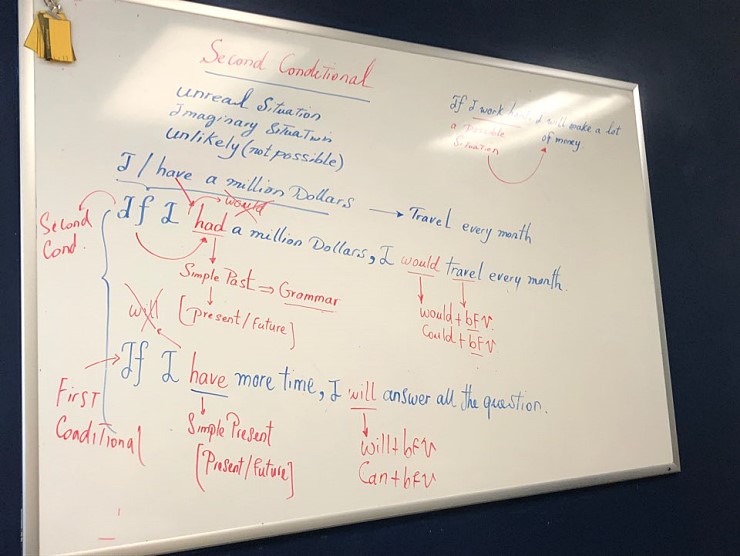 Second Conditional
unreal Situation
Imaginary Situation
unlikely (not possible)
If I work I will make a lot
of money.
a possible
Situation
I / have a million Dollars → Travel every month
would
Second
Cond.
If I had a million Dollars, I would travel every month.
Simple Past ⇒ Grammar
[Present/Future]
would + bFV
Could + bFV
will
If I have more time, I will answer all the question.
First
Conditional
Simple Present
[Present/Future]
will + bFV
Can + bFV